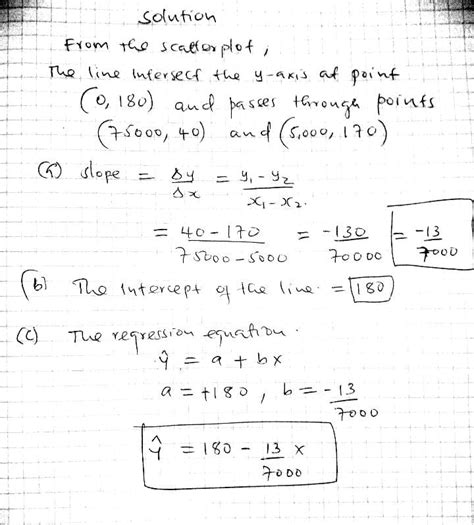 Solution
From the scatterplot,
The line Intersect the y-axis at point
(0, 180) and passes through points
(75000, 40) and (5,000, 170)
(a) slope = Δy/Δx = y₁ - y₂ / x₁ - x₂.
= 40 - 170 / 75000 - 5000 = -130/70000 = -13/7000
(b) The Intercept of the line. = 180
(c) The regression equation.
ŷ = a + bx
a = +180, b = -13/7000
ŷ = 180 - 13/7000 x